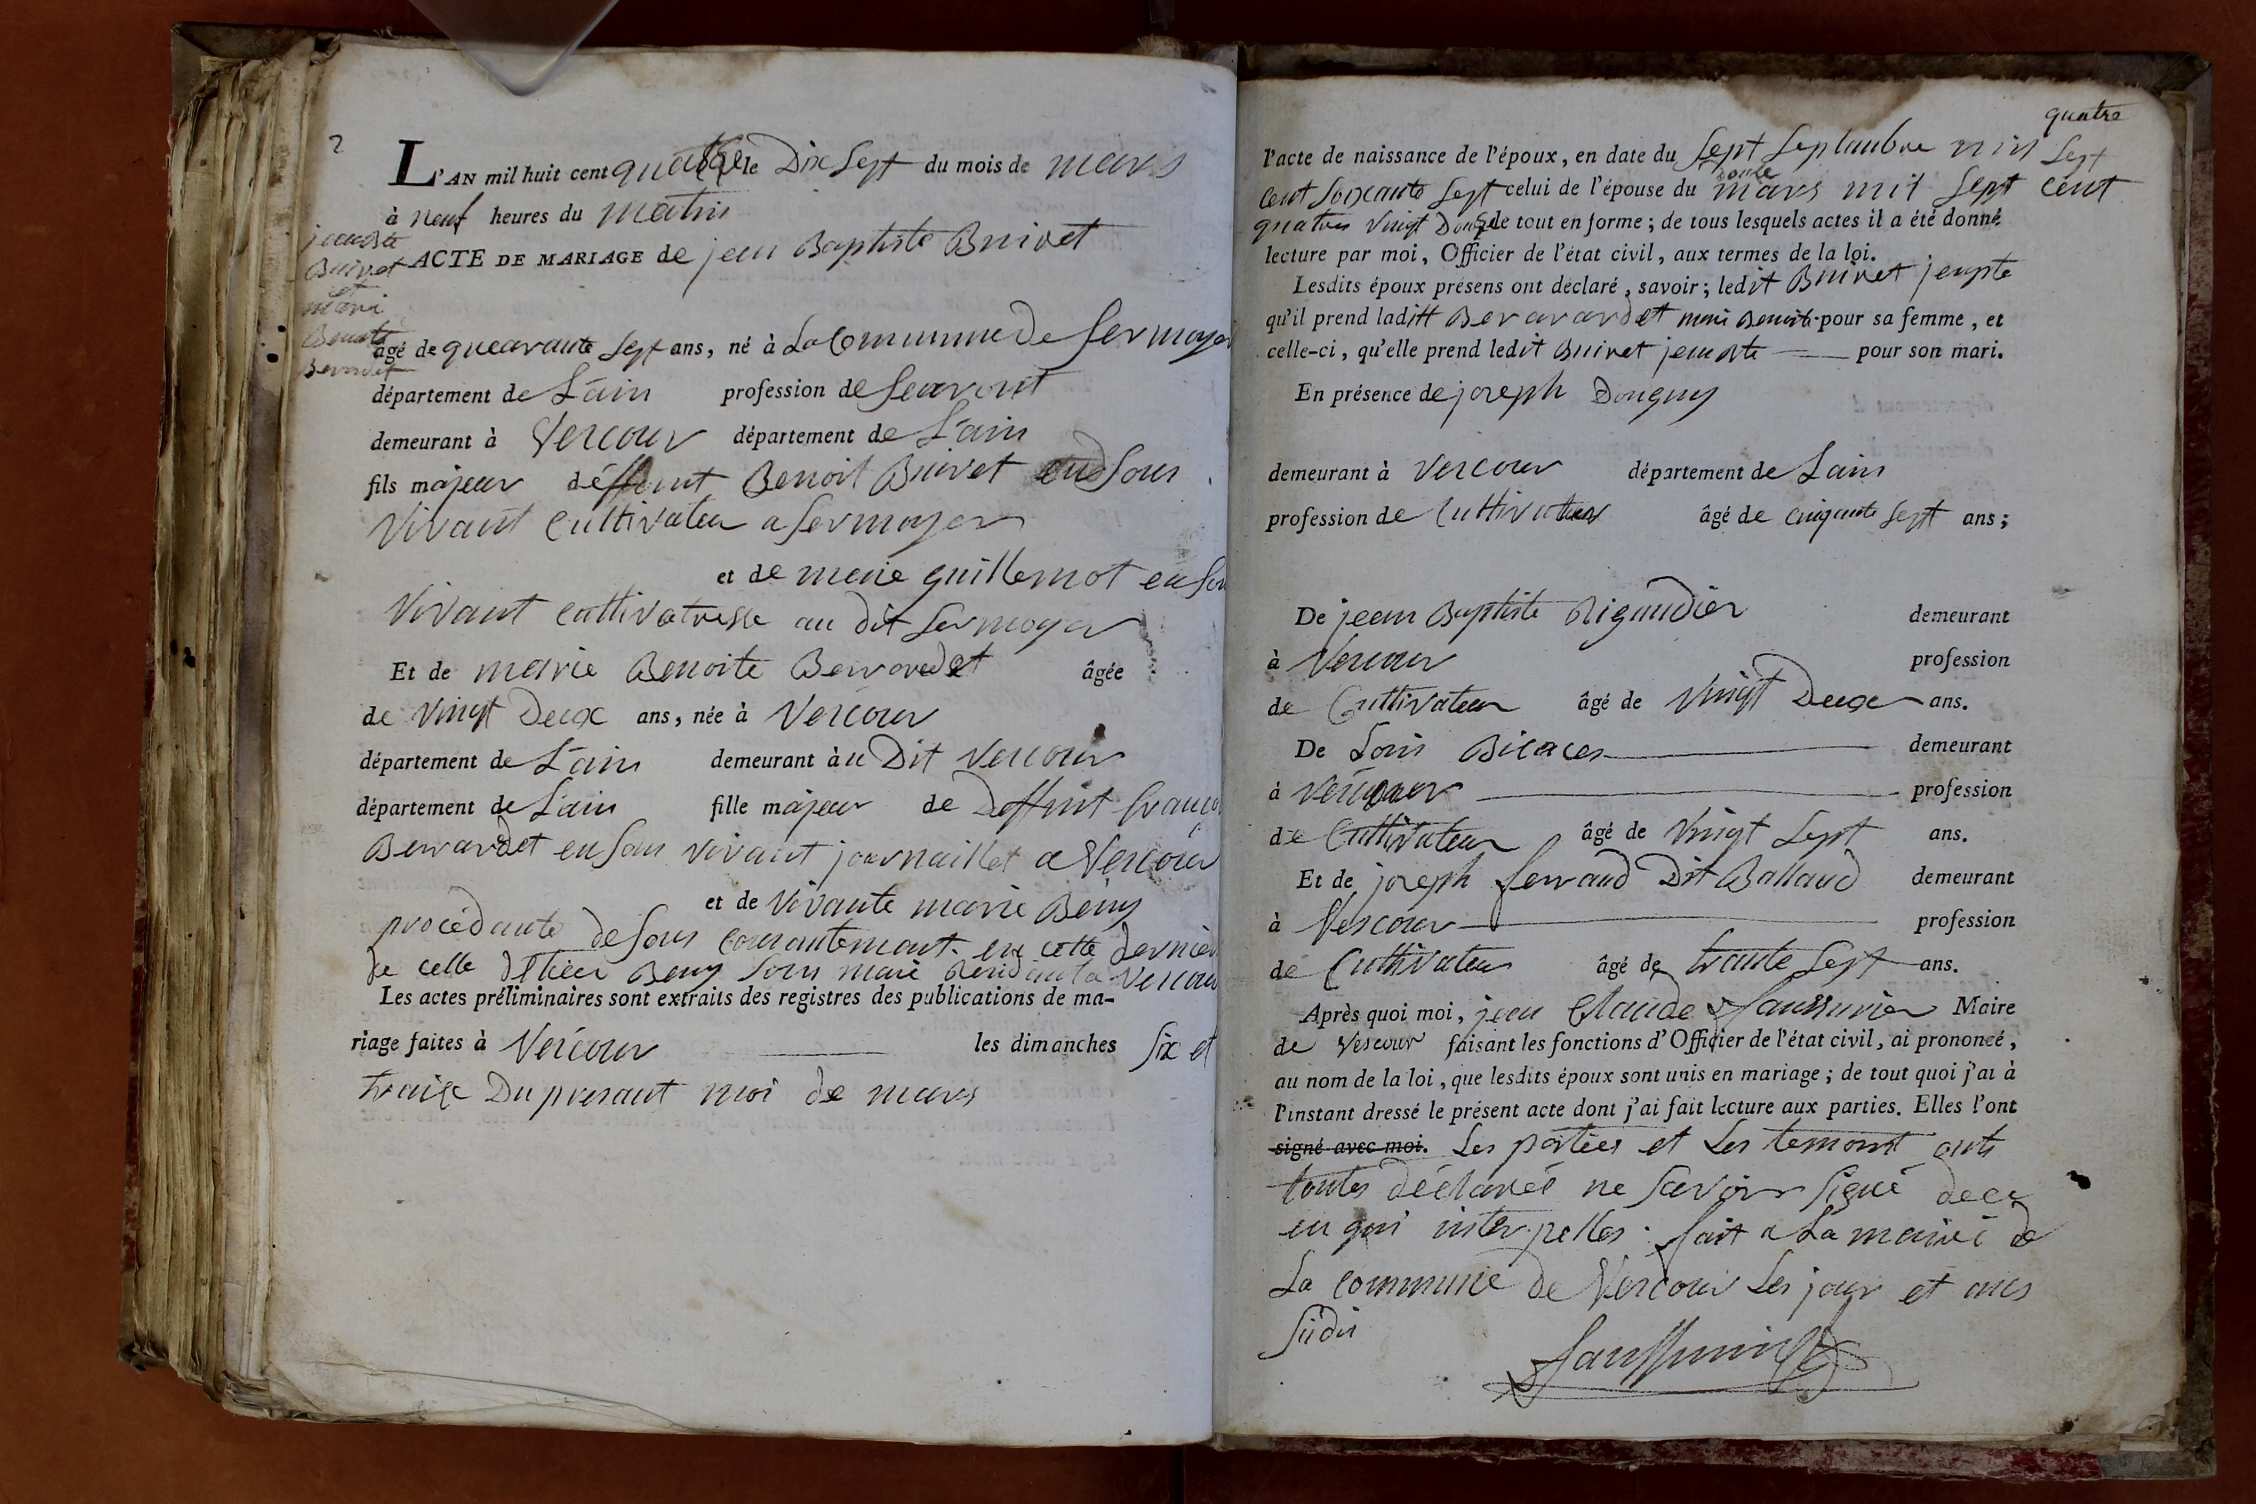 2
L'AN mil huit cent quatorze le Dix Sept du mois de mars
à neuf heures du matin
jean Bte
Buivet
et
mari
Benoite
Berardet
ACTE DE MARIAGE de jean Baptiste Buivet
âgé de quearante Sept ans, né à La Commune de Sermoyer
département de L'ain profession de Servent
demeurant à Vescour département de L'ain
fils majeur déffunt Benoit Buivet en Sons
Vivant Cultivateu a Sermoyer
et de marie guillemot en Son
Vivant cultivatresse au dit Sermoyer
Et de marie Benoite Berrardet âgée
de Vingt Deux ans, née à Vescour
département de L'ain demeurant àu Dit Vescour
département de L'ain fille majeur de Deffint françois
Berrardet en Son vivant journaillet a Vescour
et de Vivante marie Beny
procédante de Sous
de celle Beny Son mari Vescour
Les actes préliminaires sont extraits des registres des publications de ma-
riage faites à Vescour les dimanches Six et
traize Du presant moi de mars
quatre
l'acte de naissance de l'époux, en date du Sept Septambre mil Sept
Cent Soixante Sept celui de l'épouse du mars mil Sept Cent
quatre Vingt Douze le tout en forme ; de tous lesquels actes il a été donné
lecture par moi, Officier de l'état civil, aux termes de la loi.
Lesdits époux présens ont déclaré, savoir ; ledit Buivet jenpte
qu'il prend laditt Berarardet mari Benoite pour sa femme, et
celle-ci, qu'elle prend ledit Buivet jenpte pour son mari.
En présence de joseph Donguy
demeurant à Vescour département de L'ain
profession de Cultivateur âgé de cinquante Sept ans ;
De jean Baptiste Rigaudier demeurant
à Vescour profession
de Cultivateur âgé de Vingt Deux ans.
De Louis demeurant
à Vescour profession
de Cultivateur âgé de Vingt Sept ans.
Et de joseph ferraud Dit Ballaud demeurant
à Vescour profession
de Cultivateur âgé de trante Sept ans.
Après quoi moi, jean Claude Maire
de Vescour faisant les fonctions d'Officier de l'état civil, ai prononcé,
au nom de la loi, que lesdits époux sont unis en mariage ; de tout quoi j'ai à
l'instant dressé le présent acte dont j'ai fait lecture aux parties. Elles l'ont
signé avec moi. Les parties et Les temoint onts
toutes déclarés ne Savoir Signé dece
en qui interpelles fait a La mairié de
La commune de Vescour Les jour et ans
Sudis